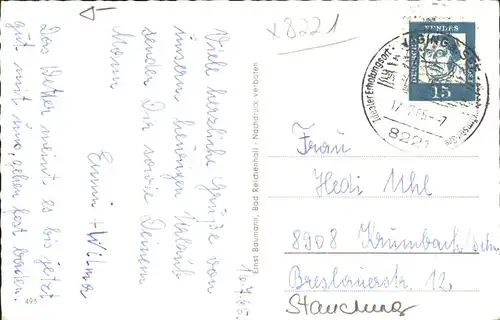 x 8221
Viele herzliche Grüße von
unserm heurigen Urlaub
senden Dir sowie Deinem
Mann
Emmi + Wilma
Das Wetter meint es bis jetzt
gut mit uns, gehen fest baden.
16.7.65.
493
Ernst Baumann, Bad Reichenhall - Nachdruck verboten
DEUTSCHE BUNDESPOST
15
-7
8221
Frau
Hedi Uhl
8908 Krumbach/Schw.
Breslauerstr. 12